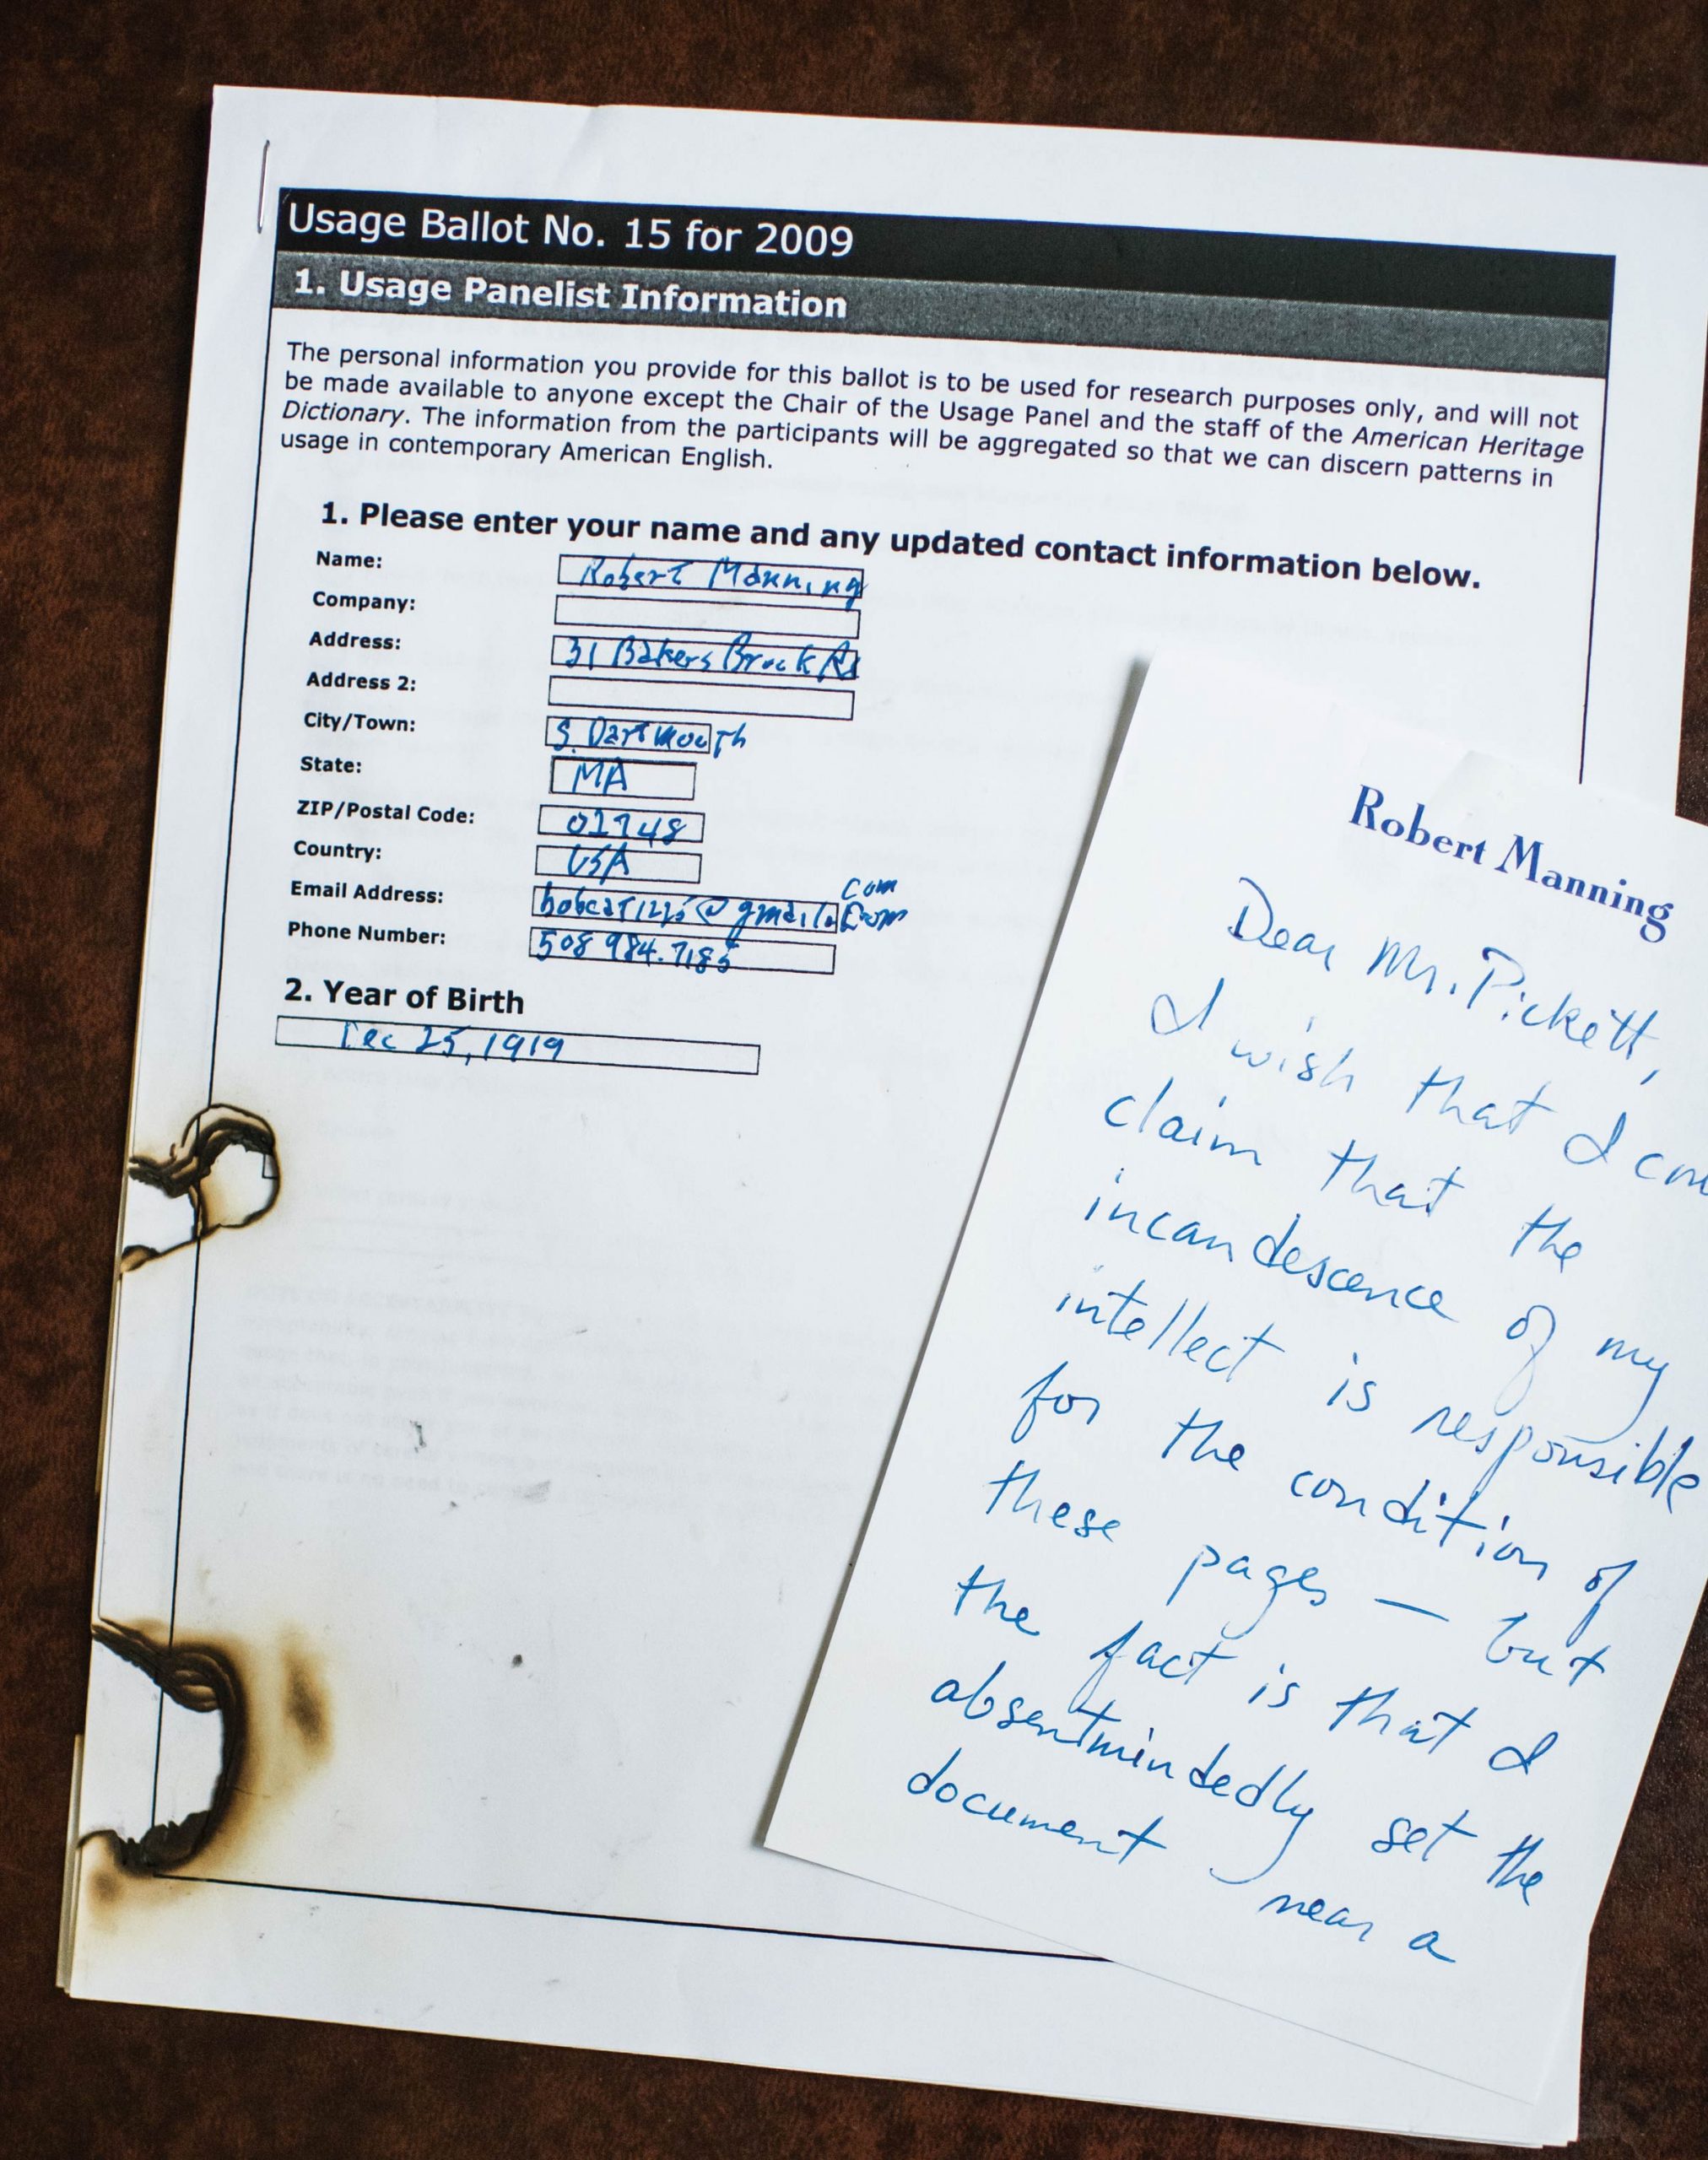 Usage Ballot No. 15 for 2009
1. Usage Panelist Information
The personal information you provide for this ballot is to be used for research purposes only, and will not
be made available to anyone except the Chair of the Usage Panel and the staff of the American Heritage
Dictionary. The information from the participants will be aggregated so that we can discern patterns in
usage in contemporary American English.
1. Please enter your name and any updated contact information below.
Name: Robert Manning
Company:
Address: 31 Bakers Brook Rd
Address 2:
City/Town: S. Dartmouth
State: MA
ZIP/Postal Code: 02748
Country: USA
Email Address: @gmail.com
Com
Phone Number: 508 984.7185
2. Year of Birth
Dec 25, 1919
Robert Manning
Dear Mr. Pickett,
I wish that I
claim that the
incandescence of my
intellect is responsible
for the condition of
these pages — but
the fact is that I
absentmindedly set the
document near a